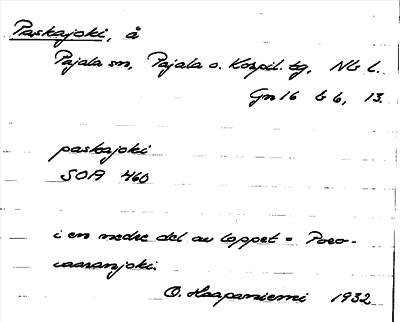 Paskajoki, å
Pajala sn, Pajala o. Korpil. tg, Nb l.
Gn 16 b 6, 13.
paskajoki
SOA 460
i en nedre del av loppet = Poro-
vaaranjoki.
O. Haapaniemi 1932